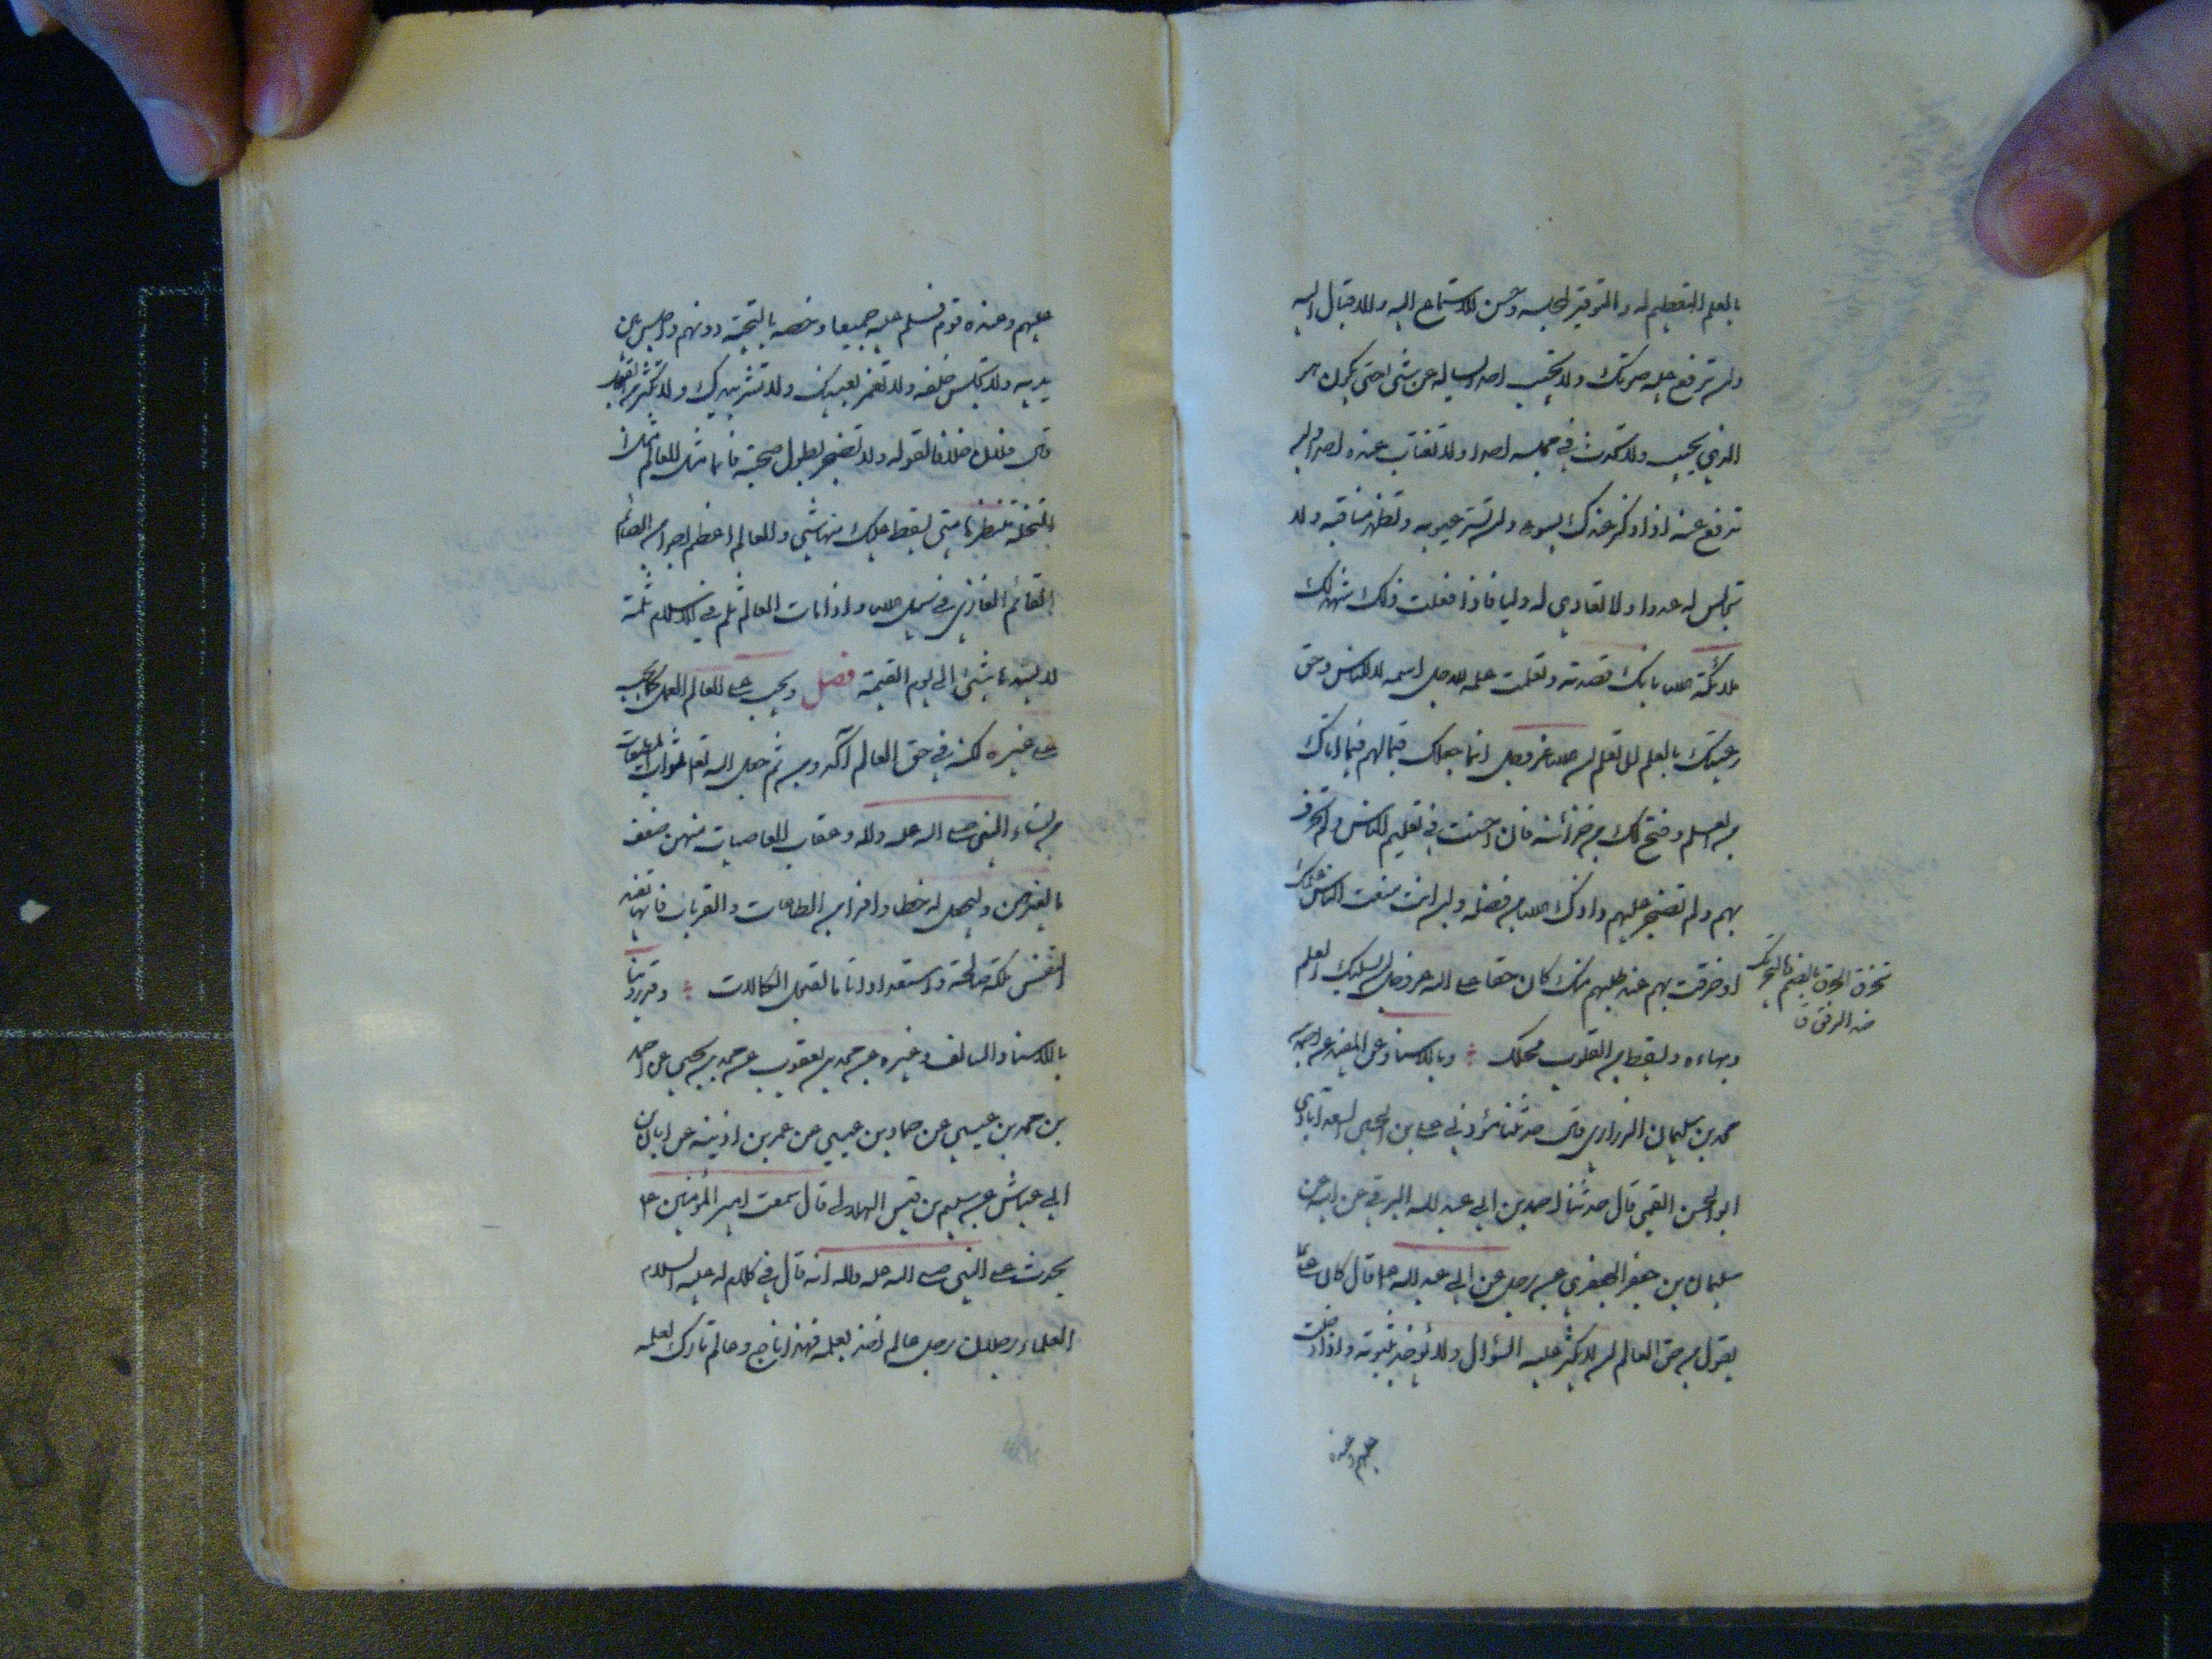 بالعلم التعظيم له والتوقير لمجلسه وحسن الاستماع اليه والاقبال اليه
وان ترفع عليه صوتك ولا تجيب احدا يساله عن شئ حتى يكون هو
الذي يجيب ولا تحدث في مجلسه احدا ولا تغتاب عنده احدا وان
تدفع عنه اذا ذكر عندك بسوء وان تستر عيوبه وتظهر مناقبه ولا
تجالس له عدوا ولا تعادي له وليا فاذا فعلت ذلك شهد لك
ملائكة الله بانك قصدته وتعلمت علمه لله جل اسمه لا للناس وحق
رعيتك بالعلم ان تعلم ان الله عز وجل انما جعلك قيما لهم فيما اتاك
من العلم وفتح لك من خزائنه فان احسنت في تعليم الناس ولم تخرق
بهم ولم تضجر عليهم زادك الله من فضله وان انت منعت الناس علمك
او خرقت بهم عند طلبهم منك كان حقا على الله عز وجل ان يسلبك العلم
وبهاءه ويسقط من القلوب محلك وبالاسناد عن المفيد عن احمد بن
محمد بن سليمان الزراري قال حدثنا مؤدبي علي بن الحسين السعد آبادي
ابو الحسن القمي قال حدثنا احمد بن ابي عبد الله البرقي عن ابيه عن
سليمان بن جعفر الجعفري عن رجل عن ابي عبد الله ع قال كان علي ع
يقول من حق العالم ان لا تكثر عليه السؤال ولا تؤخذ بثوبه واذا دخلت
تخرق الخرق بالضم وبالتحريك
ضد الرفق ق
عليهم وعنده
عليهم وعنده قوم فسلم عليه جميعا وخصه بالتحية دونهم واجلس بين
يديه ولا تجلس خلفه ولا تغمز بعينيك ولا تشر بيدك ولا تكثر من القول
قال فلان وفلان خلافا لقوله ولا تضجر بطول صحبته فانما مثل العالم مثل
النخلة تنتظرها متى يسقط عليك منها شئ وللعالم اعظم اجرا من الصائم
القائم الغازي في سبيل الله واذا مات العالم ثلم في الاسلام ثلمة
لا يسدها شئ الى يوم القيمة فصل ويجب على العالم العمل كما يجب
على غيره لكنه في حق العالم آكد ومن ثم جعل الله تعالى ثواب المطيعات
من نساء النبي صلى الله عليه واله وعقاب العاصيات منهن ضعف
ما لغيرهن وليجعل له حظا وافرا من الطاعات والقربات فانها تفيد
النفس ملكة صالحة واستعدادا تاما لقبول الكمالات وقد روينا
بالاسناد السالف وغيره عن محمد بن يعقوب عن محمد بن يحيى عن احمد
بن محمد بن عيسى عن حماد بن عيسى عن عمر بن اذينه عن ابان بن
ابي عياش عن سليم بن قيس الهلالي قال سمعت امير المؤمنين ع
يحدث عن النبي صلى الله عليه واله انه قال في كلام له عليه السلام
العلماء رجلان رجل عالم اخذ بعلمه فهذا ناج وعالم تارك لعلمه